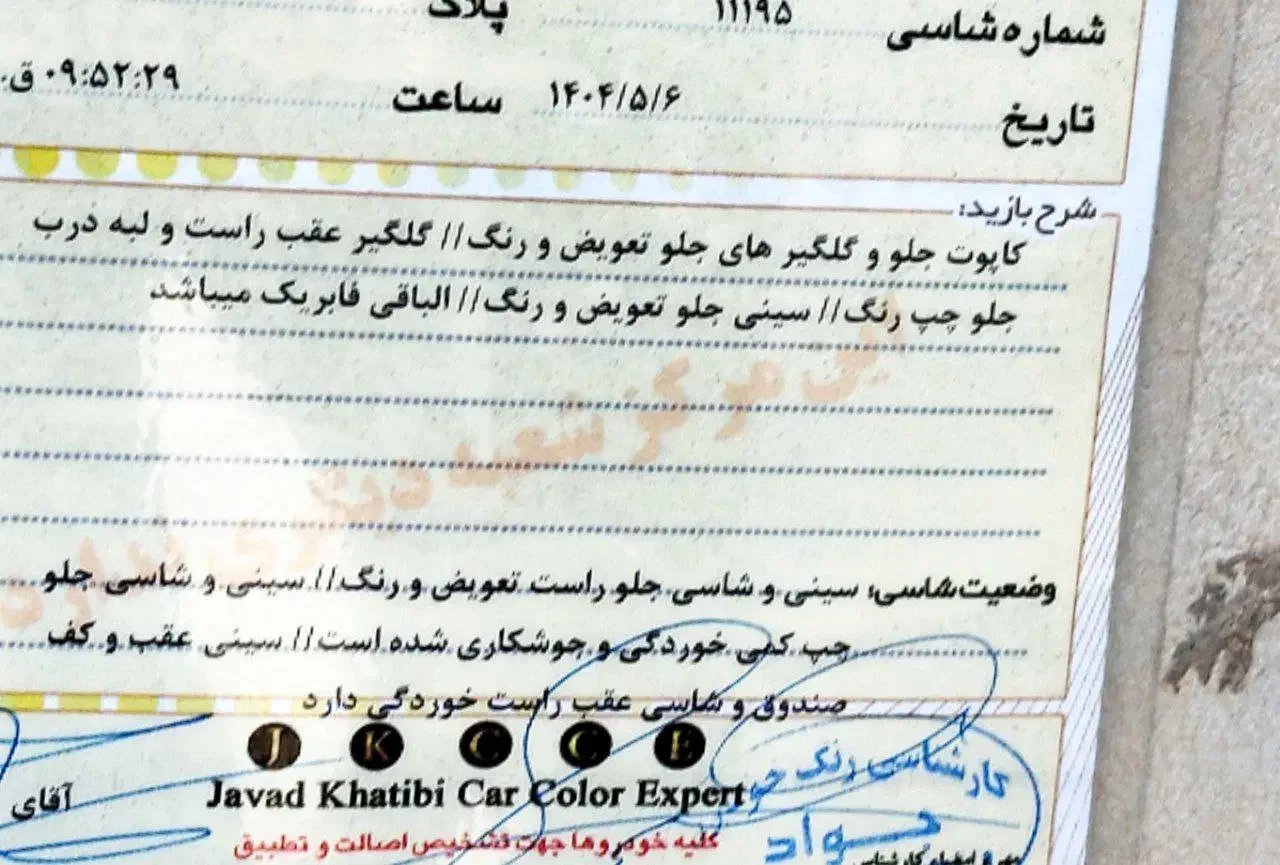 شماره شاسی ۱۱۱۹۵ پلاک
تاریخ ۱۴۰۴/۵/۶ ساعت ۰۹:۵۲:۲۹ ق.
شرح بازید:
کاپوت جلو و گلگیر های جلو تعویض و رنگ// گلگیر عقب راست و لبه درب
جلو چپ رنگ// سینی جلو تعویض و رنگ// الباقی فابریک میباشد
این مرکز شعبه دیگری ندارد
وضعیت شاسی: سینی و شاسی جلو راست تعویض و رنگ// سینی و شاسی جلو
چپ کمی خوردگی و جوشکاری شده است// سینی عقب و کف
صندوق و شاسی عقب راست خوردگی دارد
J K C C E
Javad Khatibi Car Color Expert
کارشناسی رنگ
آقای
جواد
کلیه خودروها جهت تشخیص اصالت و تطبیق